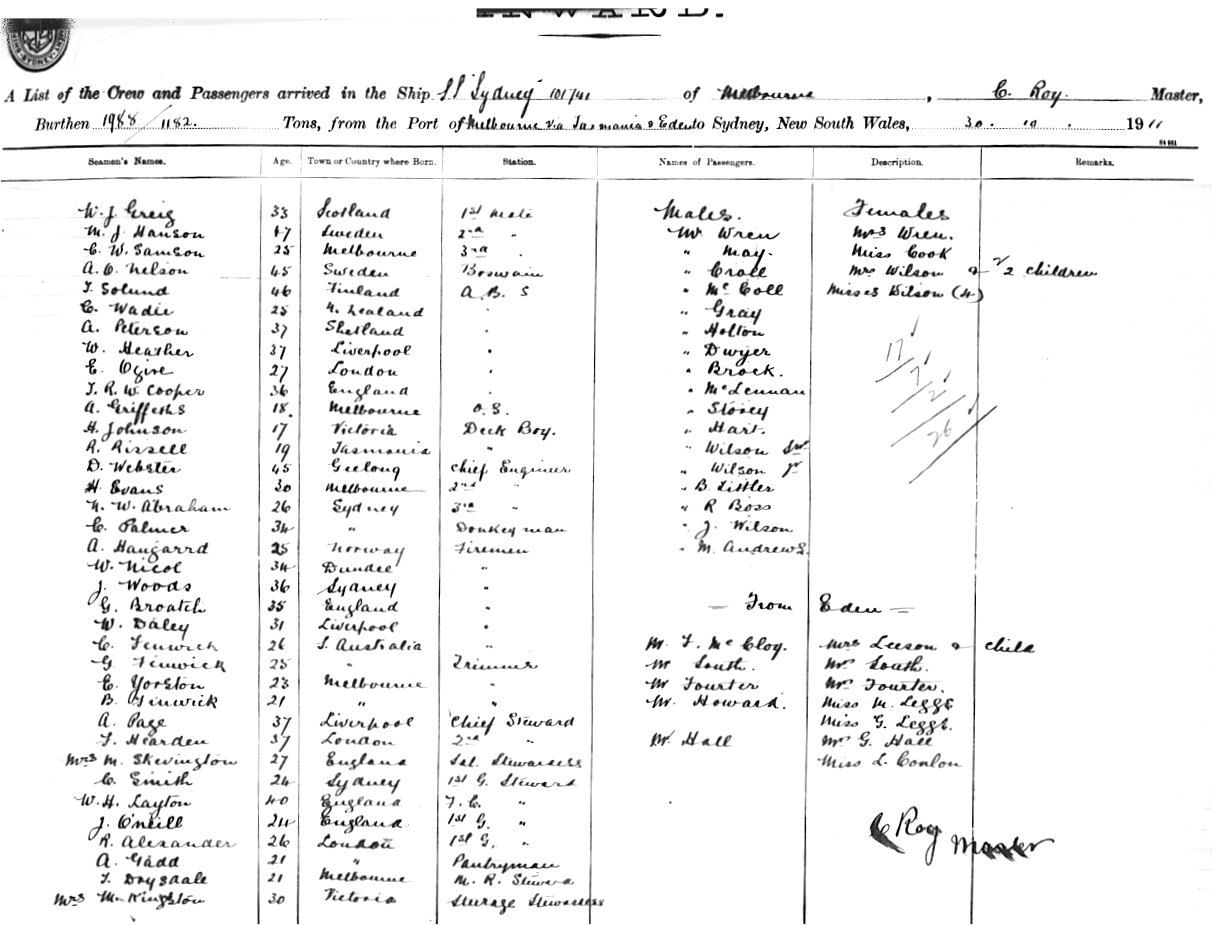 INWARD.
SYDNEY
A List of the Crew and Passengers arrived in the Ship S.S "Sydney" 101741 of Melbourne, C. Roy. Master,
Burthen 1988/1182. Tons, from the Port of Melbourne via Tasmania & Eden to Sydney, New South Wales, 30. 10. 1911
Seamen's Names. Age. Town or Country where Born. Station. Names of Passengers. Description. Remarks.
W. J. Greig 33 Scotland 1st Mate Males. Females
M. J. Hanson 47 Sweden 2nd " Mr Wren Mrs Wren.
C. W. Samson 25 Melbourne 3rd " " May. Miss Cook
A. C. Nelson 45 Sweden Boswain " Croll Mrs Wilson & 2 children
Solund 46 Finland A.B.S " McColl Misses Wilson (4)
C. Wadie 25 N. Zealand . " Gray
A. Peterson 37 Shetland . " Holton
W. Heather 37 Liverpool . " Dwyer 17
E. 27 London . " Brock. 7
R. W. Cooper 36 England . " McLennan 2
A. Griffeths 18. Melbourne O.S. " Storey
H. Johnson 17 Victoria Deck Boy. " Hart. 26
R. Rissell 19 Tasmania " " Wilson Snr
D. Webster 45 Geelong Chief Engineer " Wilson Jr
H. Evans 30 Melbourne 2nd " " B. Littler
W. Abraham 26 Sydney 3rd " " R Boss
C. Palmer 34 " Donkeyman " J. Wilson
A. Haugarrd 25 Norway Firemen " M. Andrews.
W. Nicol 34 Dundee "
J. Woods 36 Sydney "
G. Broatch 35 England " — From Eden —
W. Daley 31 Liverpool "
C. Fenwick 26 S. Australia " Mr. McCloy. Mrs Leeson & child
G. Finwick 25 " Trimmer Mr South. Mrs South.
E. Yorston 23 Melbourne " Mr Fourter Mrs Fourter.
B. Finwick 21 " " Mr. Howard. Miss M. Leggs
A. Page 37 Liverpool Chief Steward Miss G. Leggs.
Hearden 37 London 2nd " Mr. Hall Mrs G. Hall
Mrs M. Skevington 27 England Sal. Stewardess Miss L. Conlon
C. Smith 24 Sydney 1st G. Steward
W. H. Layton 40 England "
J. O'neill 24 England 1st G. " C Roy Master
R. Alexander 26 London 1st G. "
A. Gadd 21 " Pantryman
Drysdale 21 Melbourne M. R. Steward
Mrs M. Kingston 30 Victoria Steerage Stewardess